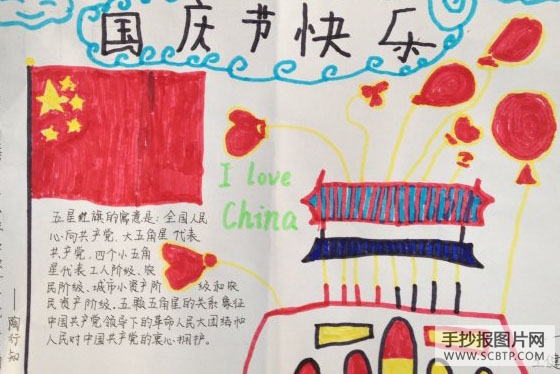 国庆节快乐
I love
China
五星红旗的寓意是:全国人民
心向共产党,大五角星代表
共产党,四个小五角
星代表工人阶级、农
民阶级、城市小资产阶级和农
民资产阶级。五颗五角星的关系象征
中国共产党领导下的革命人民大团结和
人民对中国共产党的衷心拥护。
——陶行知
手抄报图片网
WWW.SCBTP.COM